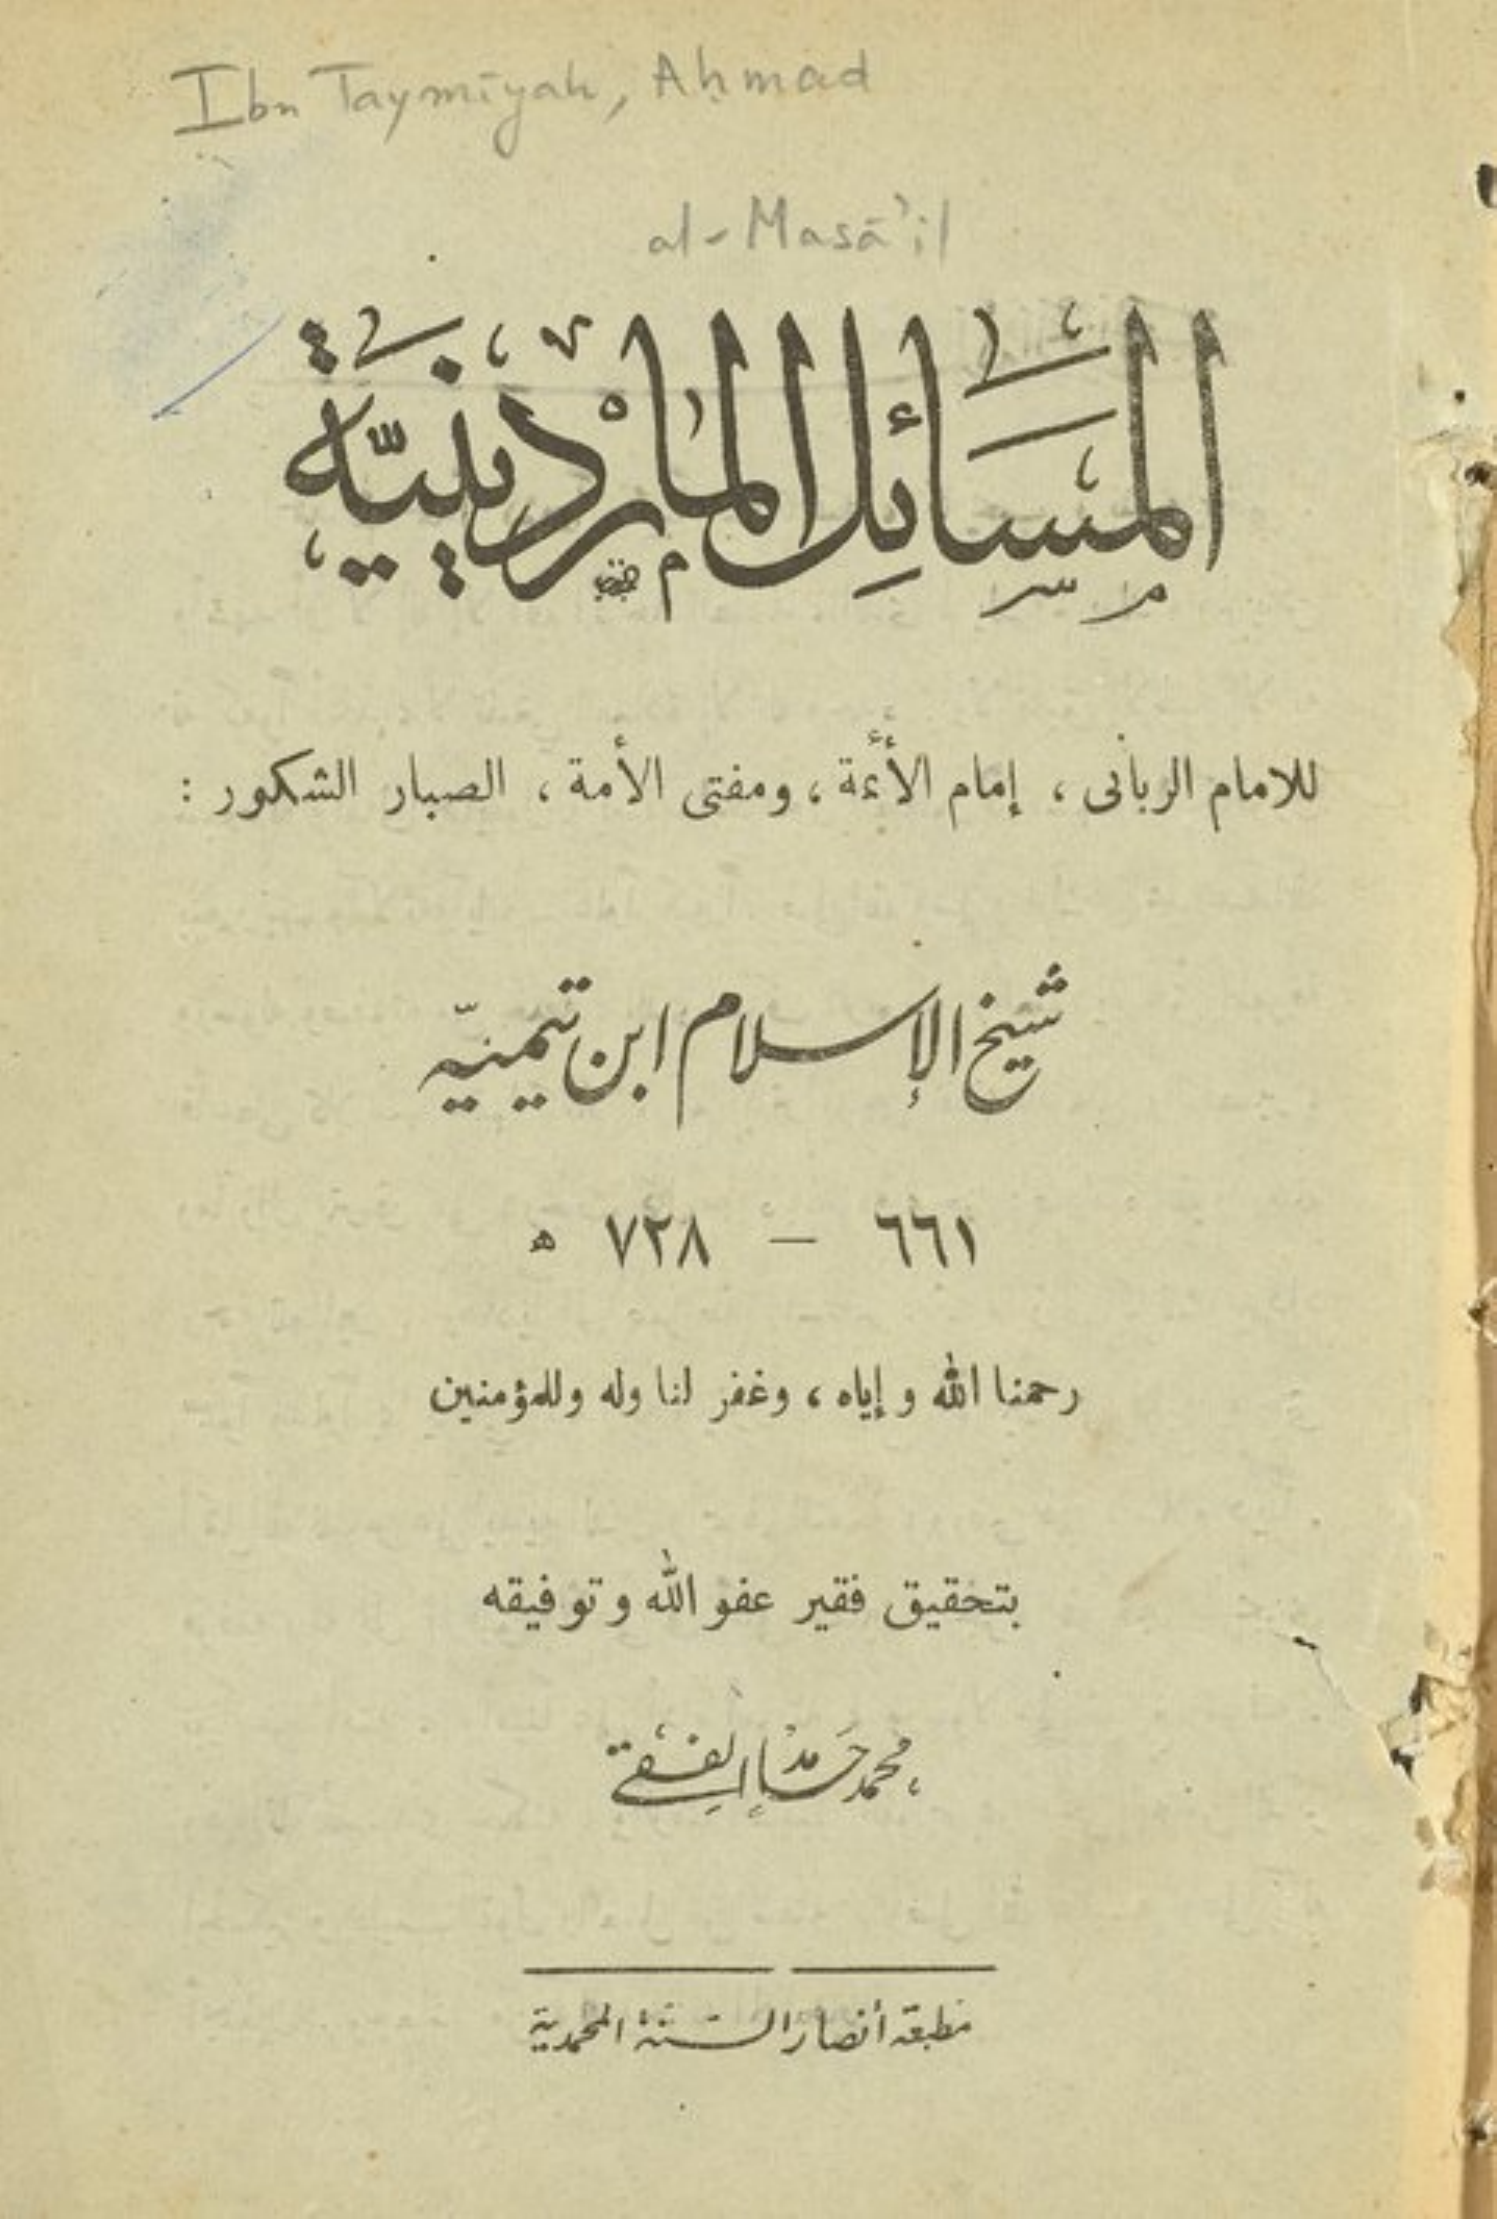 Ibn Taymīyah, Aḥmad
al-Masā'il
المسائل الماردينية
للامام الربانى ، إمام الأئمة ، ومفتى الأمة ، الصبار الشكور :
شيخ الإسلام ابن تيمية
٦٦١ — ٧٢٨ ه
رحمنا الله وإياه ، وغفر لنا وله وللمؤمنين
بتحقيق فقير عفو الله وتوفيقه
محمد حامد الفقي
مطبعة أنصار السنة المحمدية